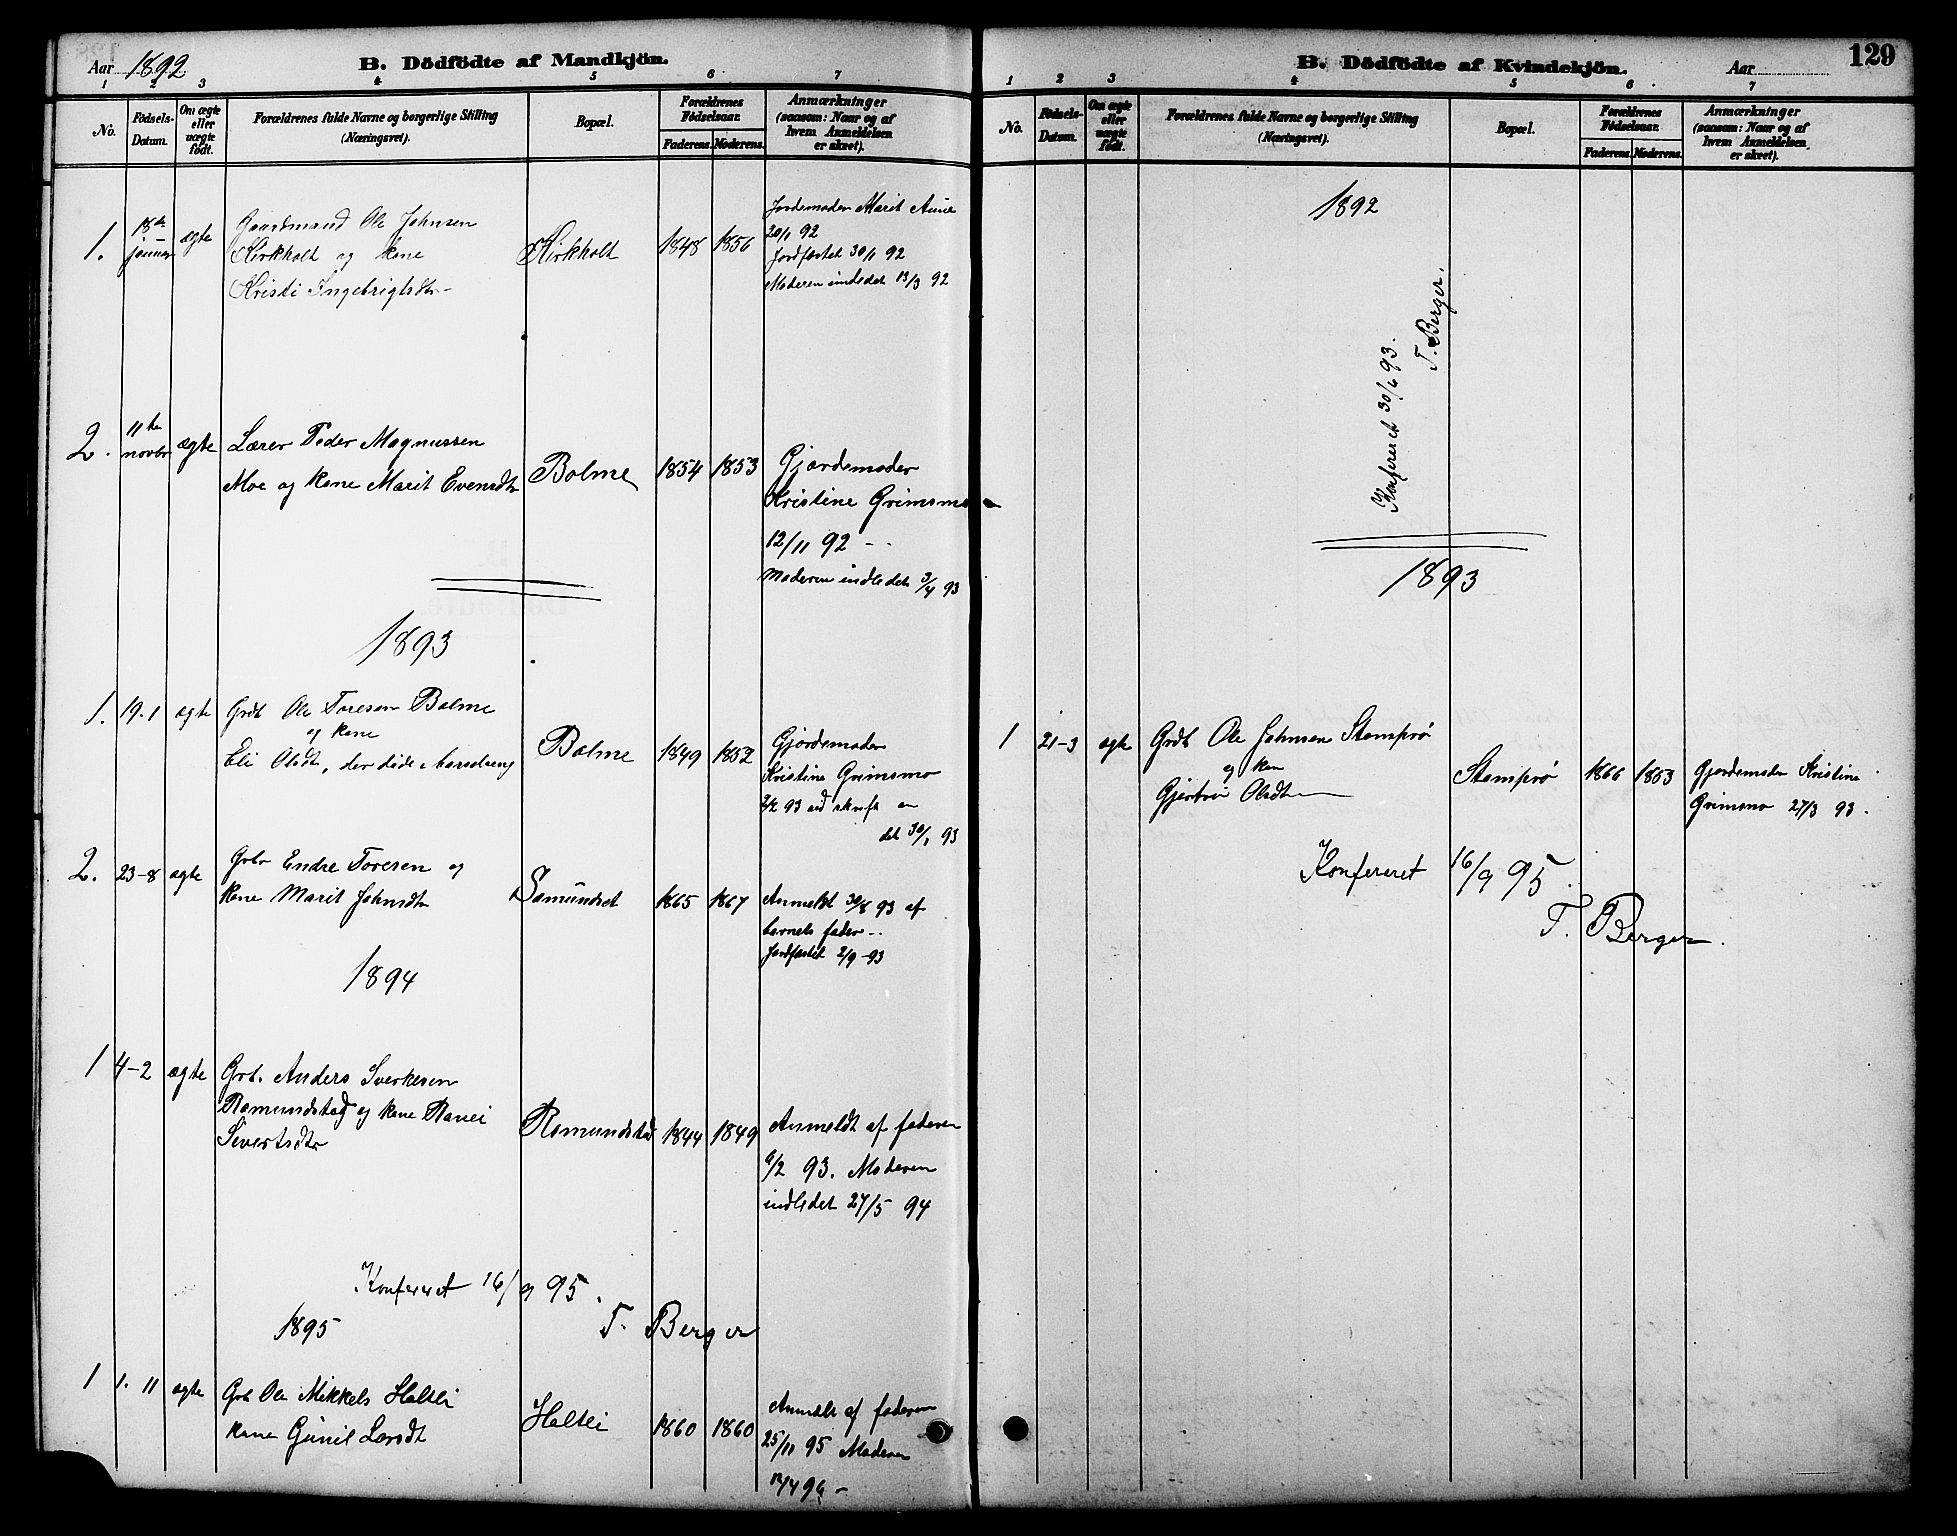 Aar 1892
B. Dödfödte af Mandkjön.
1 2 3 4 5 6 7
No.
Födsels-Datum.
Om ægte eller uægte født.
Forældrenes fulde Navne og borgerlige Stilling (Næringsvei).
Bopæl.
Forældrenes Födselsaar.
Faderens. Moderens.
Anmærkninger (saasom: Naar og af hvem Anmeldelsen er skeet).
1. 18de januar ægte
Gaardmand Ole Johnsen
Kirkholt og kone
Kristi Ingebrigtsdtr
Kirkholt 1848 1856
Jordemoder Marit Aune
20/1 92
Jordfæstet 30/1 92
Moderen indledet 13/3 92
2. 11te novbr ægte
Lærer Peder Magnussen
Moe og kone Marit Evensdtr
Bolme 1854 1853
Gjordemoder
Kristine Grimsmo
12/11 92
Moderen indledet 3/4 93
1893
1. 19. 1 ægte
Grdb Ole Toresen Bolme
og kone
Eli Olsdtr, der døde i Barselseng
Bolme 1849 1852
Gjordemoder
Kristine Grimsmo
93
det 30/1 93
2. 23-8 ægte
Grbr Endre Toresen og
kone Marit Johnsdtr
1865 1867
Anmeldt 30/8 93 af
barnets fader
Jordfæstet 2/9-93
1894
1 4-2 ægte
Grb. Anders Sverkesen
Romundstad og kone Ranei
Sivertsdtr
Romundstad 1844 1849
Anmeldt af faderen
9/2 93. Moderen
indledet 27/5 94
Konfereret 16/9 95.
1895 T. Berger
1 1. 11 ægte
Grb Ole Mikkels Holtli
kone Gunil Larsdt
Holtli 1860 1860
Anmeldt af faderen
25/11 95 Moderen
B. Dödfödte af Kvindekjön.
Aar
129
1 2 3 4 5 6 7
No.
Födsels-Datum.
Om ægte eller uægte født.
Forældrenes fulde Navne og borgerlige Stilling (Næringsvei).
Bopæl.
Forældrenes Födselsaar.
Faderens. Moderens.
Anmærkninger (saasom: Naar og af hvem Anmeldelsen er skeet).
1892
Konfereret 30/6 93.
T. Berger.
1893
1 21-3 ægte
Grdb Ole Johnsen Stomprø
og kone
Gjertru Olsdtr
Stomprø 1866 1853
Gjordemoder Kristine
Grimsmo 27/3 93.
Konfereret 16/9 95.
T. Berger.